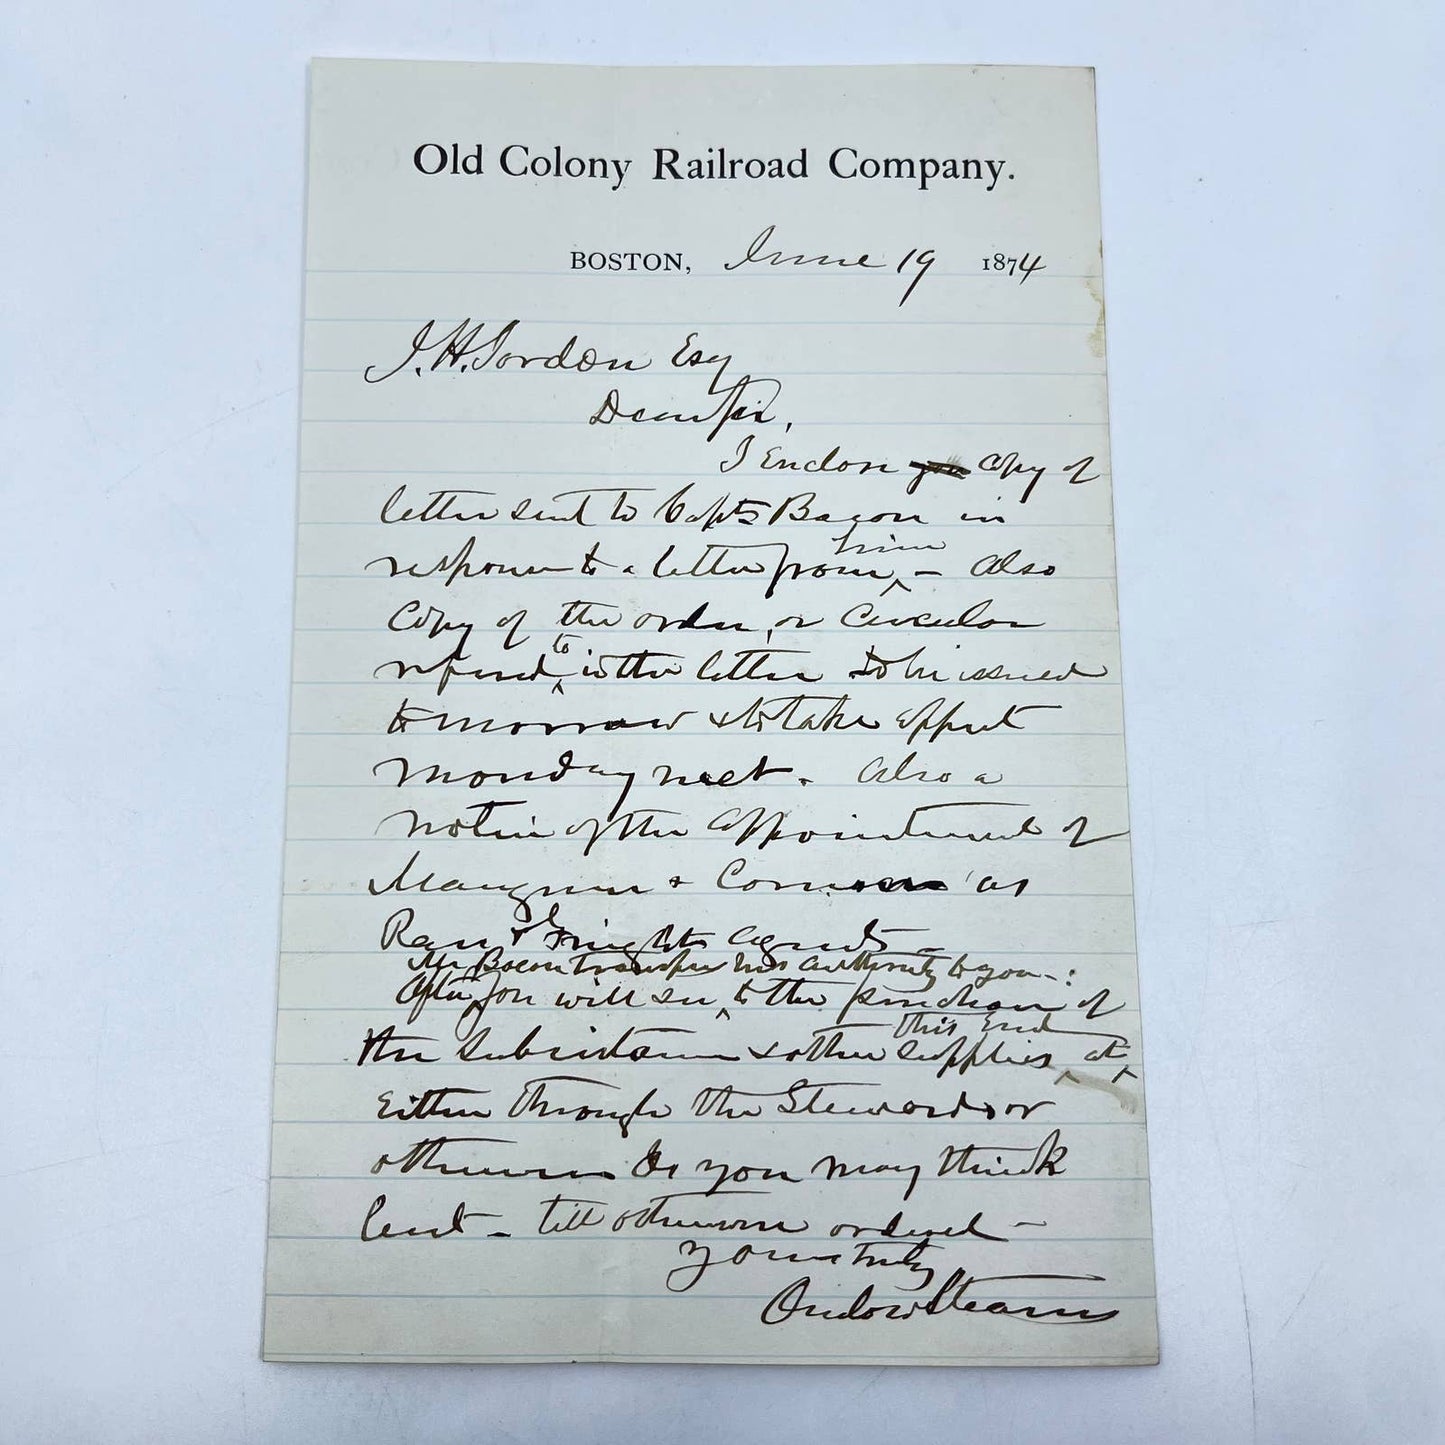 Old Colony Railroad Company.
BOSTON, June 19 1874
J. H. Jordon Esq
Dear Sir,
I Enclose you copy of
letter sent to Capt Bacon in
response to a letter from him – also
Copy of the order, or Circular
referred to in the letter to be issued
tomorrow & to take effect
Monday next. Also a
notice of the appointment of
& as
& Freight Agents –
After Mr Bacon transfers his authority to you – :
you will see to the purchase of
the Subsistence & other Supplies this End at
Either through the Stewards or
otherwise as you may think
best – till otherwise ordered –
yours truly
Onslow Stearns